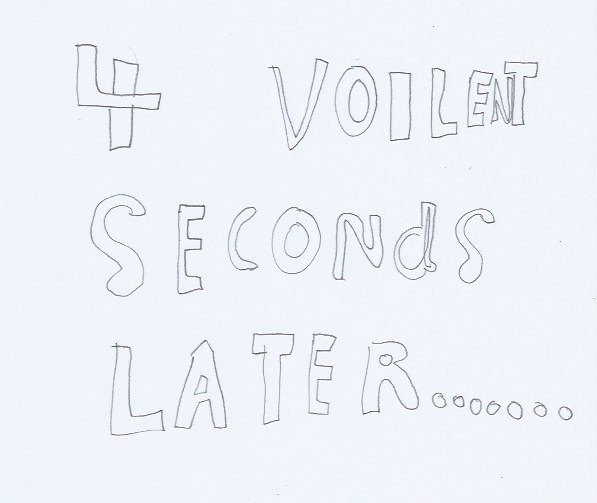 4 VOILENT
SECONdS
LATER.......